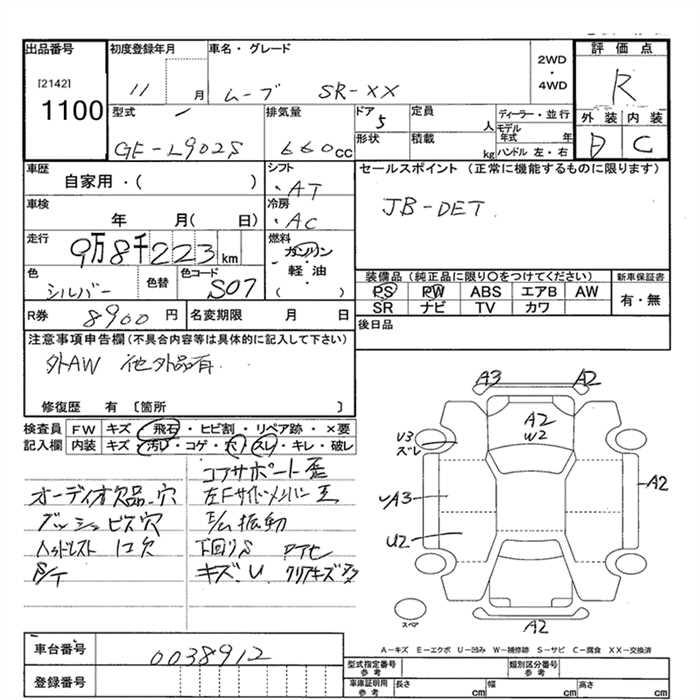 出品番号 初度登録年月 車名・グレード 評価点
[2142] 2WD・4WD R
1100 11 月 ムーブ SR-XX 外装 内装
型式 排気量 ドア 定員 ディーラー・並行 D C
GE-L902S 660cc 5 人 モデル年式 年
形状 積載 kg ハンドル 左・右
車歴 シフト セールスポイント (正常に機能するものに限ります)
自家用・( ) ・AT JB-DET
車検 冷房
年 月(日) ・AC
走行 燃料
9万8千223km ガソリン
色 色替 色コード 軽・油 装備品(純正品に限り○をつけてください) 新車保証書
シルバー S07 ( ) PS PW ABS エアB AW 有・無
SR ナビ TV カワ
R券 8900円 名変期限 月 日 後日品
注意事項申告欄(不具合内容等は具体的に記入して下さい)
外AW 他外品有
修復歴 有 〔箇所 〕
検査員 FW キズ・飛石・ヒビ割・リペア跡・×要
記入欄 内装 キズ・汚レ・コゲ・穴・スレ・キレ・破レ
コアサポート歪
オーディオ欠品・穴
ダッシュビス穴 E/M振動
ヘッドレスト 1コ欠 下回りS
キズ・U
A3 A2
A2
W2
U3
ズレ
A3 A2
U2
A2
スペア
A-キズ E-エクボ U-凹み W-補修跡 S-サビ C-腐食 XX-交換済
車台番号 0038912
型式指定番号 参考 類別区分番号 参考
登録番号 車庫証明用 参考 長さ cm 幅 cm 高さ cm